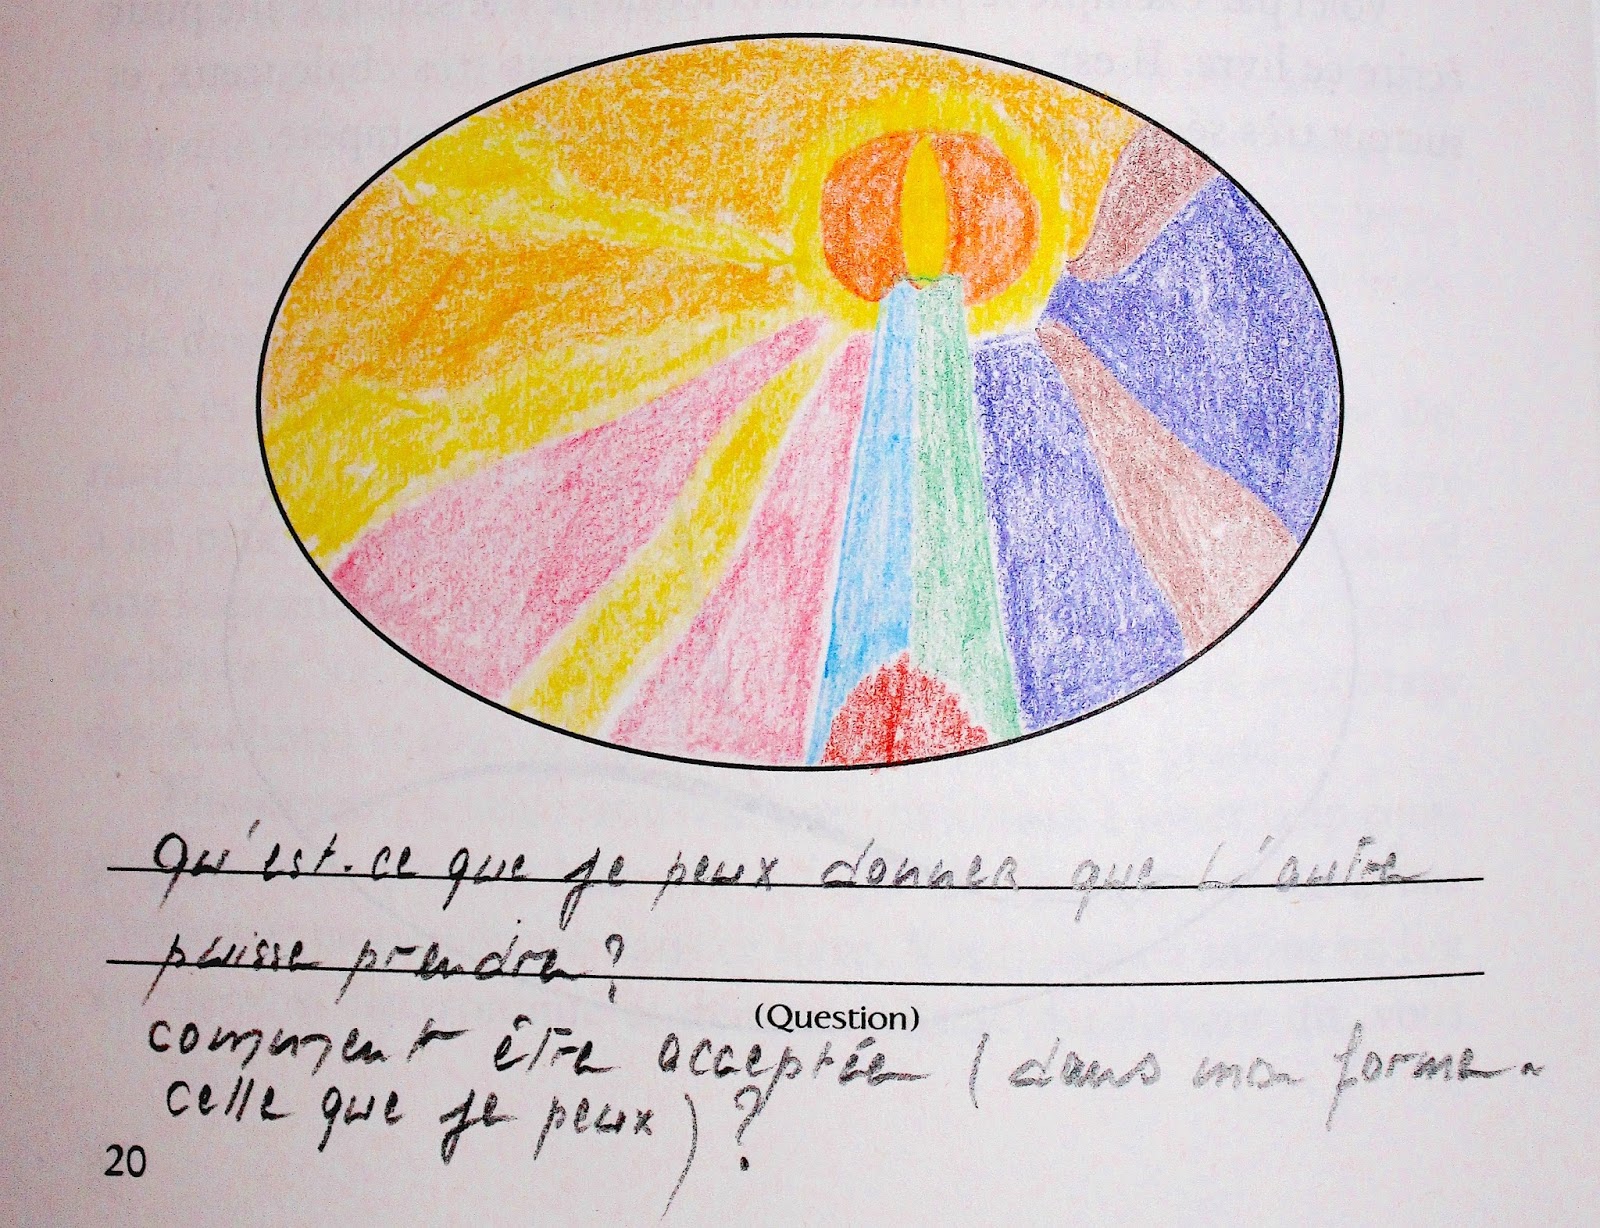 Qu'est-ce que je peux donner que l'autre
puisse prendre?
(Question)
comment être acceptée (dans ma forme -
celle que je peux)?
20